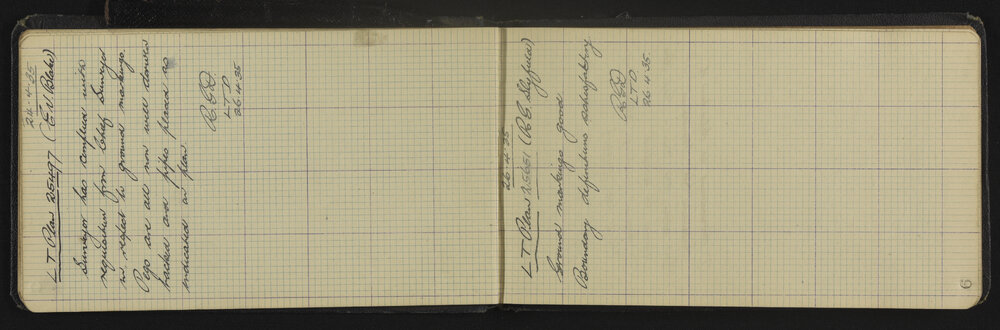 24·4·35
L T Plan 25497 (E V Blake)
Surveyor has complied with
requisition from Chief Surveyor
in respect to ground markings.
Pegs are all now well driven
packed and pipes placed as
indicated on plan
R E D
L T D
26·4·35
26·4·35
L T Plan 25651 (R E Slyfield)
Ground markings good
Boundary definitions satisfactory
R E D
L T D
26·4·35
6